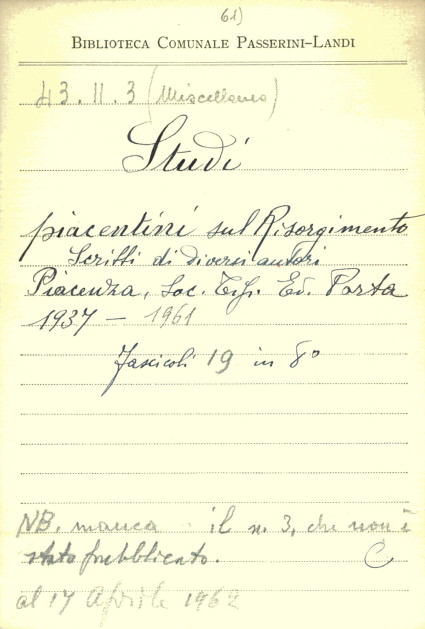 61)
BIBLIOTECA COMUNALE PASSERINI-LANDI
43.II.3 (Miscellanea)
Studi
piacentini sul Risorgimento
Scritti di diversi autori
Piacenza, Soc. Tip. Ed. Porta
1937 - 1961
Fascicoli 19 in 8°
NB. manca il n. 3, che non è
stato pubblicato. C
al 17 Aprile 1962